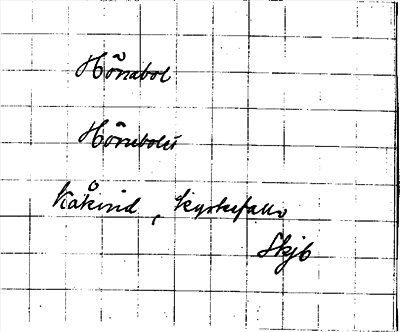 Hönabol
Hönebolet
Kåkind, Kyrkefalla
Skjb